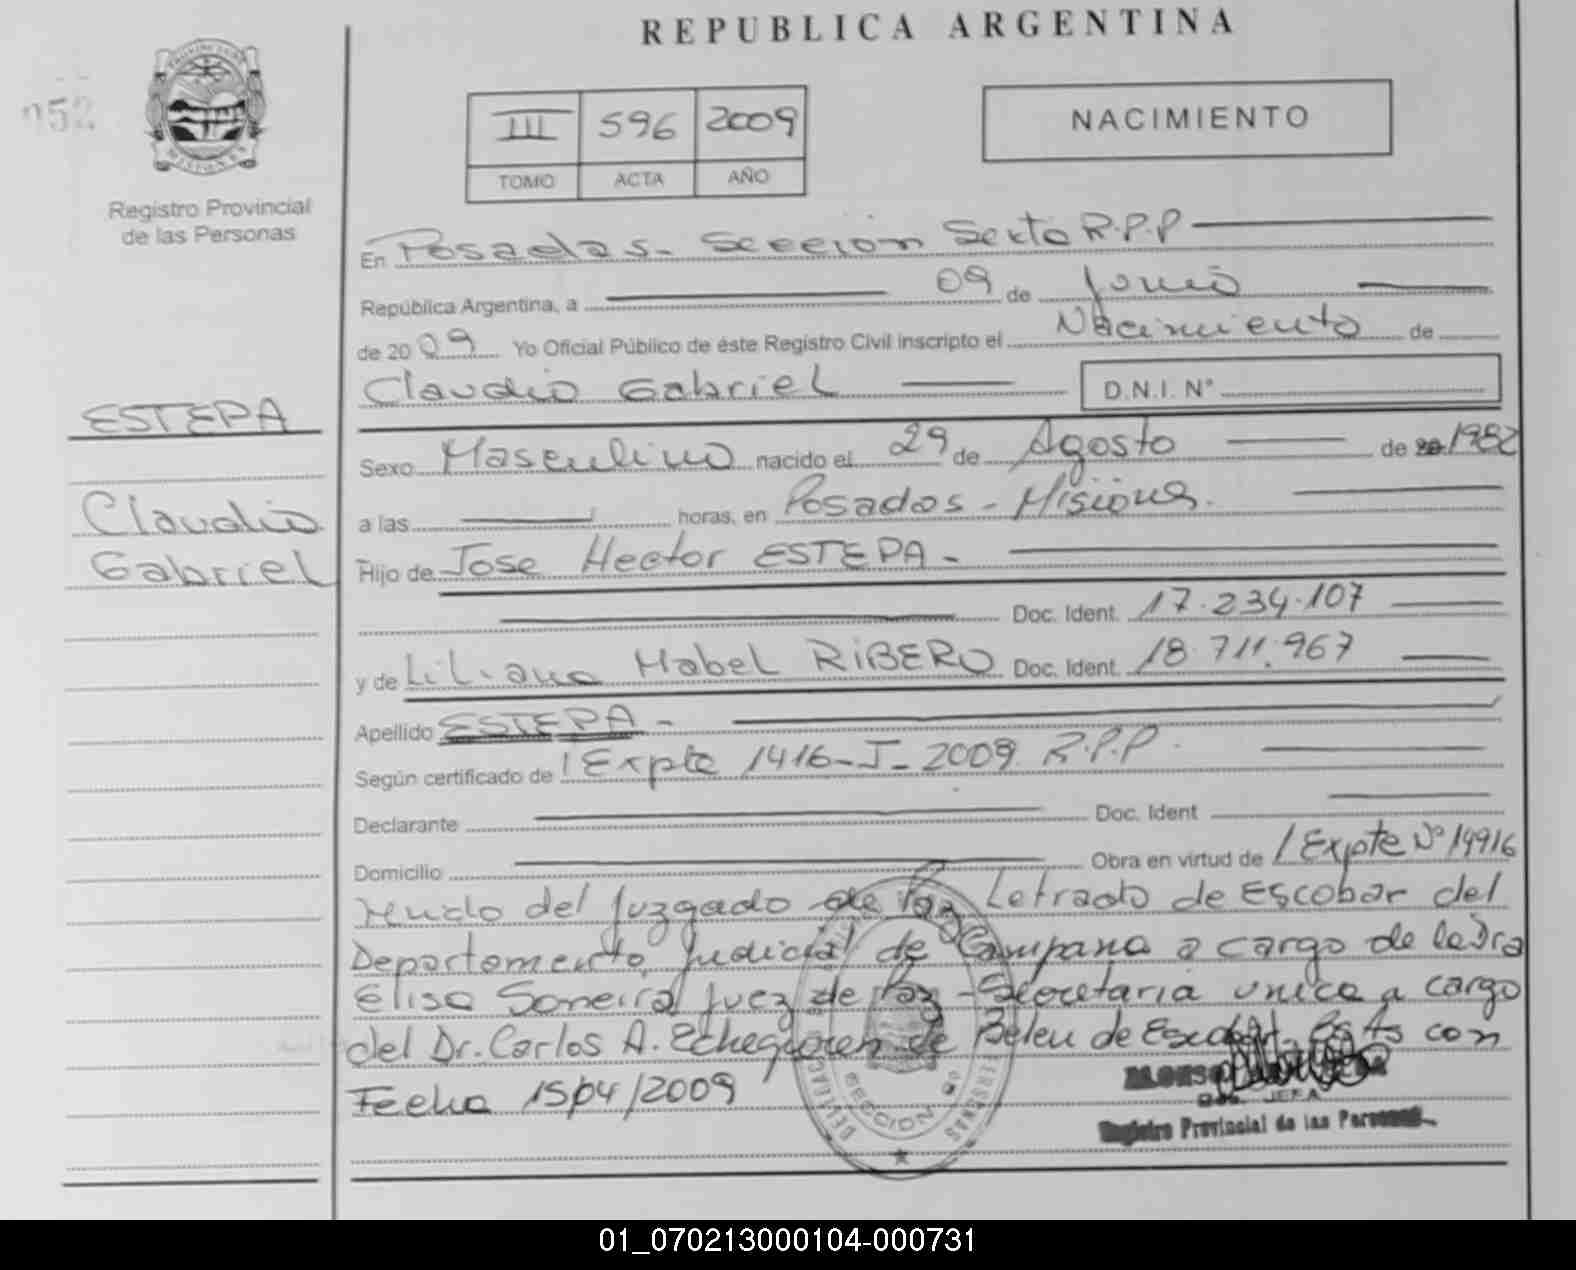 REPUBLICA ARGENTINA
052
PROVINCIA DE
MISIONES
Registro Provincial
de las Personas
III 596 2009
TOMO ACTA AÑO
NACIMIENTO
En Posadas - Seccion Sexta R.P.P
República Argentina, a 09 de Junio
de 2009 Yo Oficial Público de éste Registro Civil inscripto el Nacimiento de
Claudio Gabriel D.N.I. N°
ESTEPA
Claudio
Gabriel
Sexo Masculino nacido el 29 de Agosto de 20 1982
a las horas, en Posadas - Misiones.
Hijo de Jose Hector ESTEPA -
Doc. Ident. 17.234.107
y de Liliana Mabel RiBERO Doc. Ident. 18.711.967
Apellido ESTEPA -
Según certificado de Expte 1416-J-2009 R.P.P.
Declarante Doc. Ident
Domicilio Obra en virtud de Expte N° 14916
del Juzgado de Paz Letrado de Escobar del
Departamento Judicial de Campana a cargo de la Dra
Elisa Soneira Juez de Paz - Secretaria unica a cargo
del Dr. Carlos A. Echegaray de Belen de Escobar. con
Fecha 15/04/2009
SECCION
PERSONAS
JEFA
Registro Provincial de las Personas
01_070213000104-000731